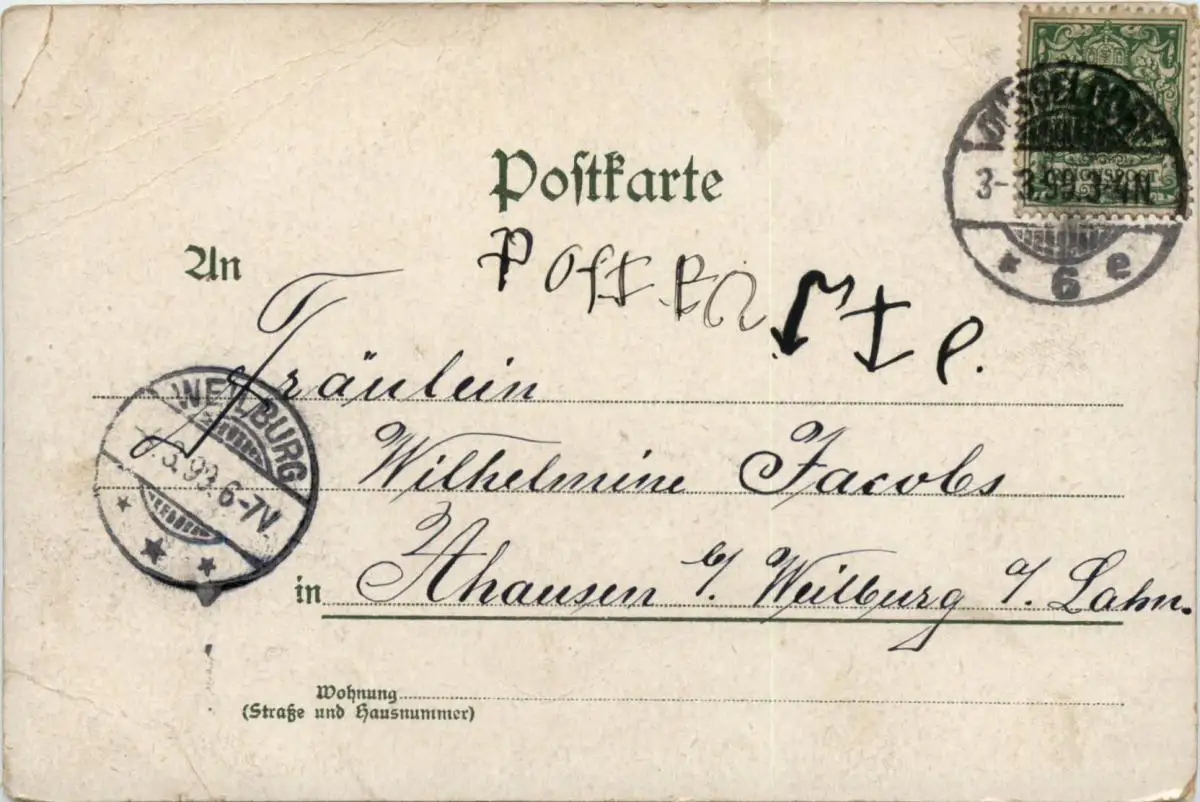 Postkarte
An
Fräulein
Wilhelmine Jacobs
in Ahausen b/ Weilburg a/ Lahn.
Wohnung
(Straße und Hausnummer)
DÜSSELDORF
3-3.99.3-4N
* 6 e
REICHSPOST
WEILBURG
.3.99.6-7V.